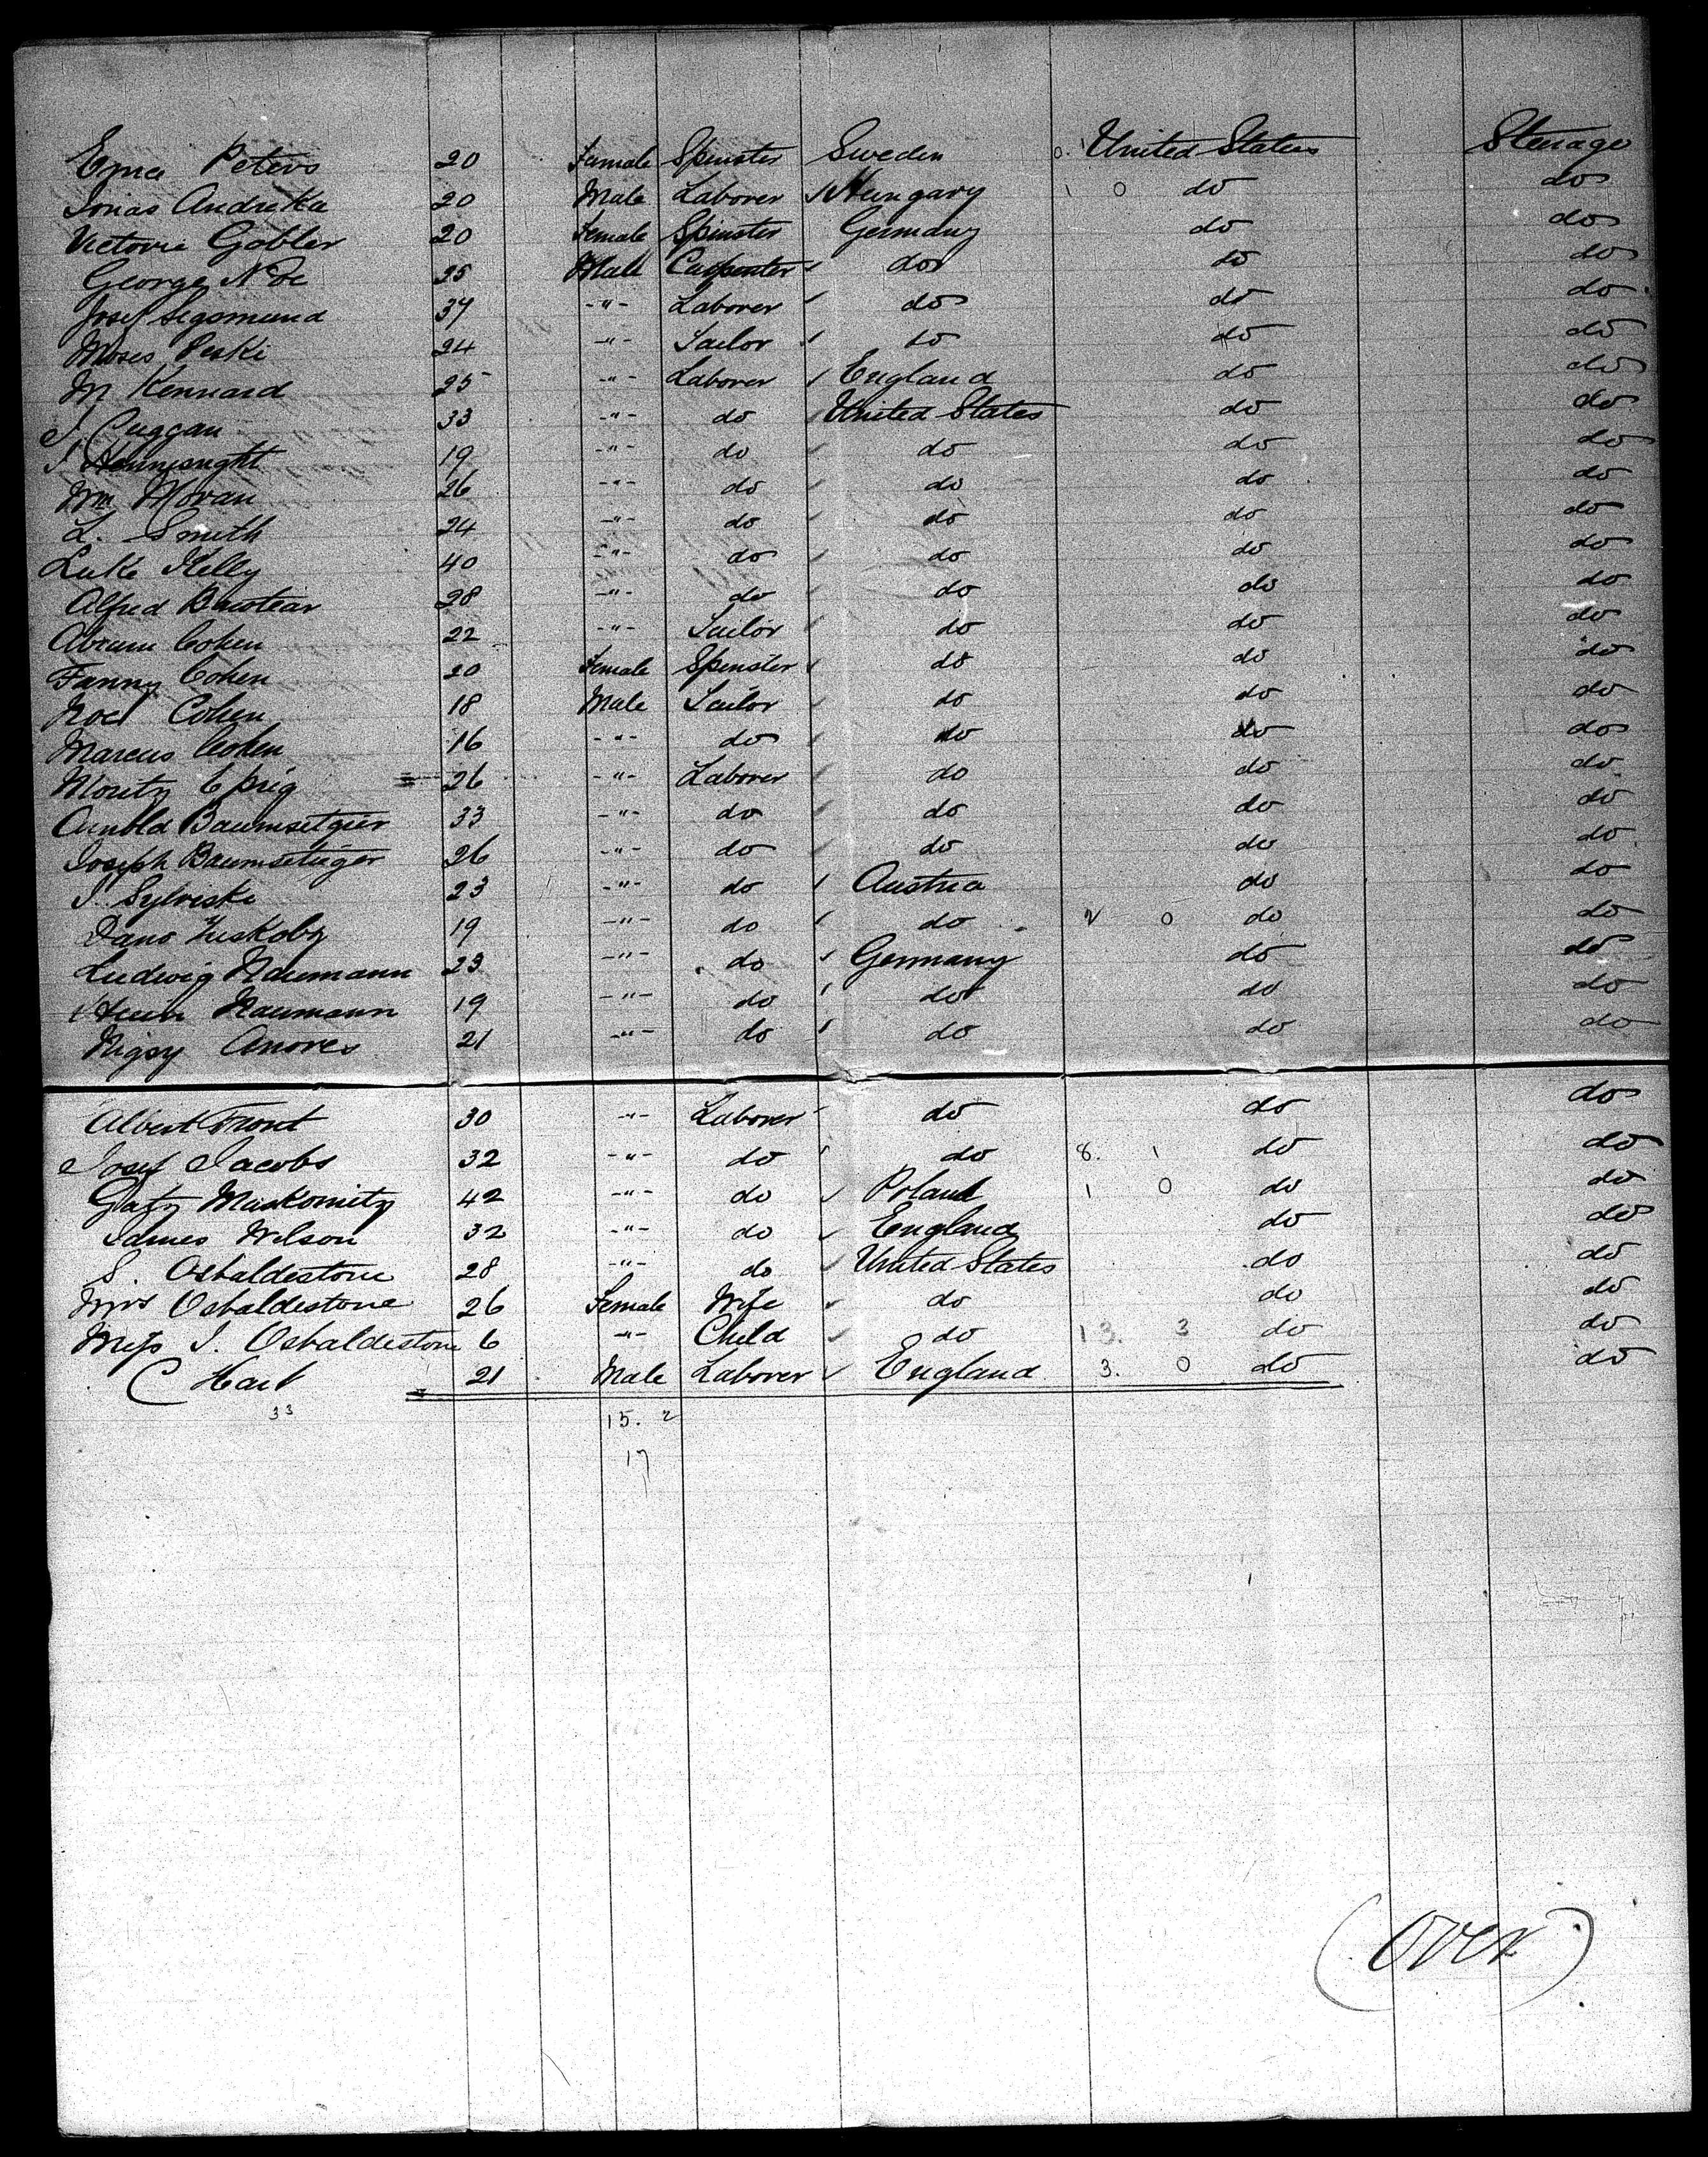 Emma Peters 20 Female Spinster Sweden 0. 1 United States Steerage
Jonas Andreka 20 Male Laborer Hungary 1 0 do do
Victoria Gobler 20 Female Spinster Germany do do
George Noe 25 Male Carpenter do do do
Josef Segomund 37 -"- Laborer do do do
Moses Peski 24 -"- Tailor do do do
M Kennard 25 -"- Laborer England do do
J. Cuggan 33 -"- do United States do do
J 19 -"- do do do do
Wm Moran 26 -"- do do do do
L. Smith 24 -"- do do do do
Luke Kelly 40 -"- do do do do
Alfred 28 -"- do do do do
Abram Cohen 22 -"- Tailor do do do
Fanny Cohen 20 Female Spinster do do do
Noel Cohen 18 Male Tailor do do do
Marcus Cohen 16 -"- do do do do
Moritz 26 -"- Laborer do do do
Arnold Baumsetgier 33 -"- do do do do
Joseph Baumsetieger 26 -"- do do do do
J. Sylviski 23 -"- do Austria do do
Dano Zuskoby 19 -"- do do 2 0 do do
Ludwig Naumann 23 -"- do Germany do do
Naumann 19 -"- do do do do
Nigsy Anores 21 -"- do do do do
Albert Front 30 -"- Laborer do do do
Josef Jacobs 32 -"- do do 8. 1 do do
Maskowitz 42 -"- do Poland 1 0 do do
James Wilson 32 -"- do England do do
S. Osbaldestone 28 -"- do United States do do
Mrs Osbaldestone 26 Female Wife do do do
Miss J. Osbaldestone 6 -"- Child do 13. 3 do do
C Hart 21 Male Laborer England 3. 0 do do
33 15. 2
17
(over)